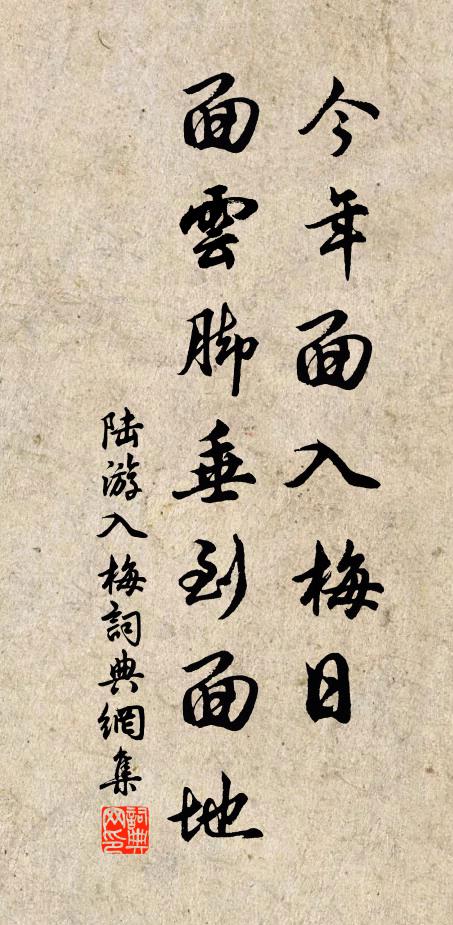 今年面入梅日
面雲脚垂到面地
陆游入梅詞典網集
詞典网印